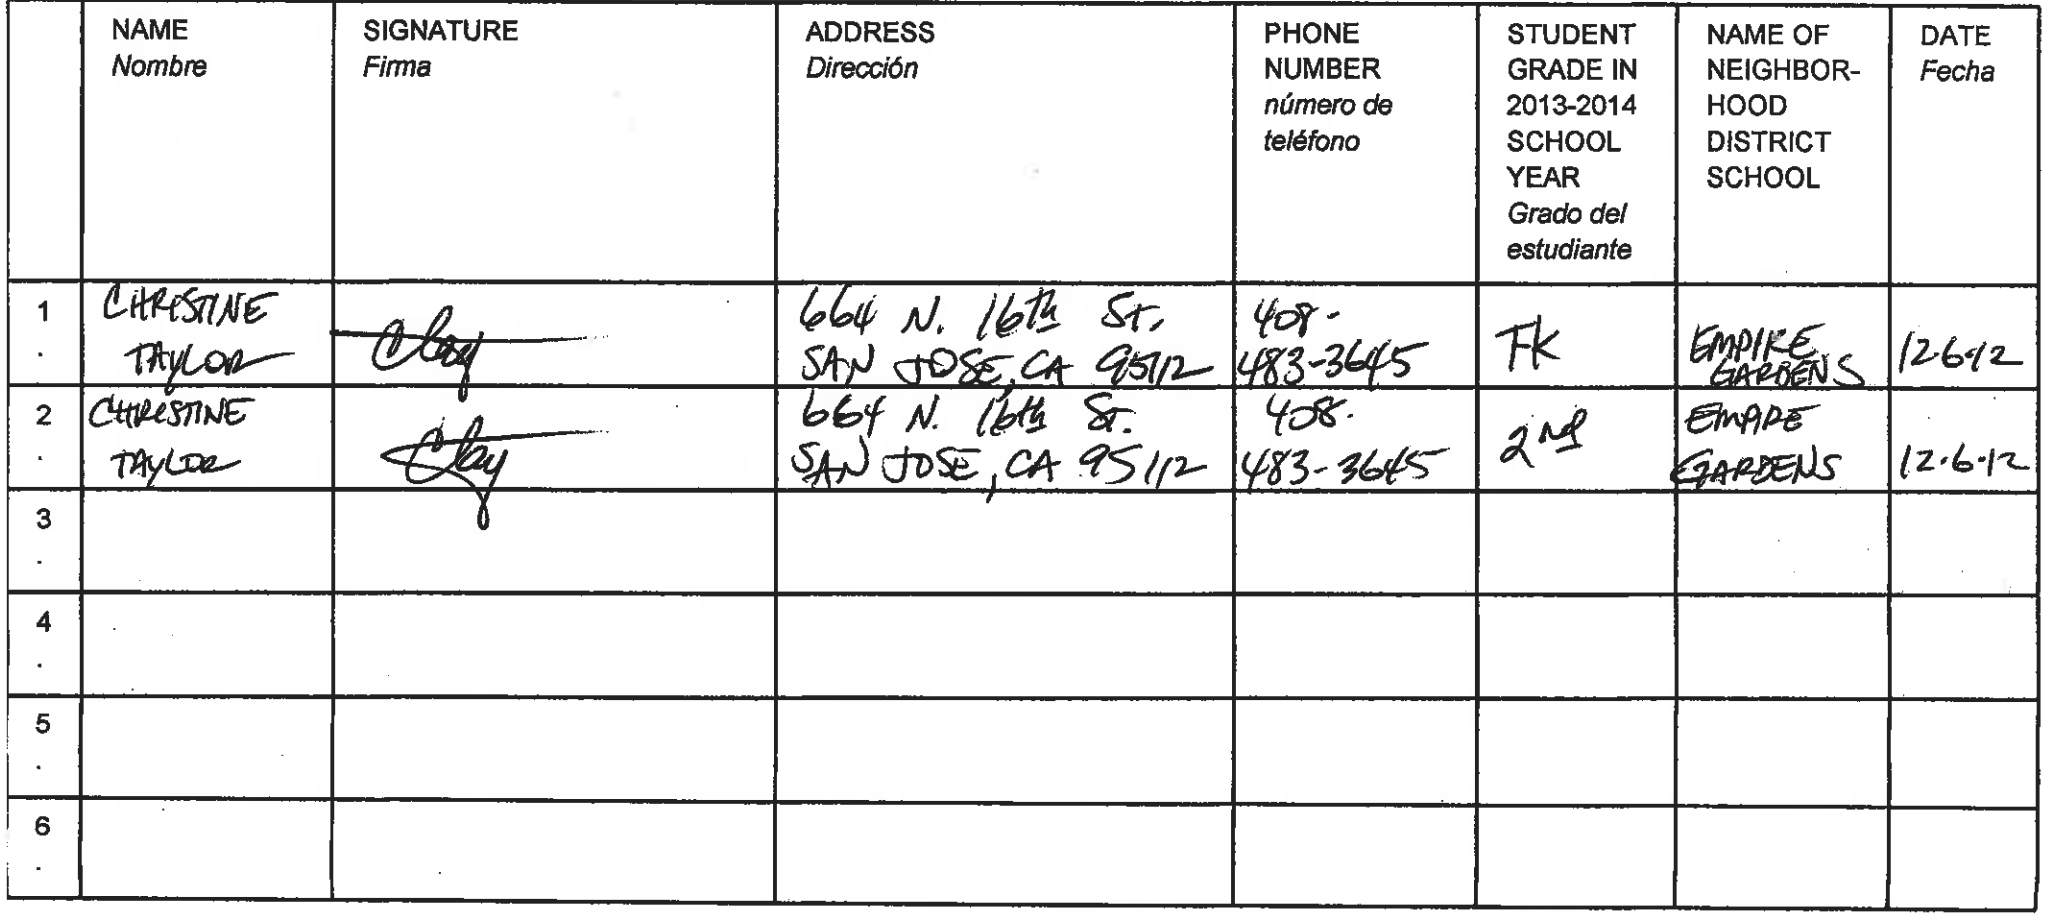 NAME
Nombre
SIGNATURE
Firma
ADDRESS
Dirección
PHONE
NUMBER
número de
teléfono
STUDENT
GRADE IN
2013-2014
SCHOOL
YEAR
Grado del
estudiante
NAME OF
NEIGHBOR-
HOOD
DISTRICT
SCHOOL
DATE
Fecha
1
.
CHRISTINE
TAYLOR
664 N. 16th St.
SAN JOSE, CA 95112
408-
483-3645
TK
EMPIRE
GARDENS
12-6-12
2
.
CHRISTINE
TAYLOR
664 N. 16th St.
SAN JOSE, CA 95112
408.
483-3645
2nd
EMPIRE
GARDENS
12-6-12
3
.
4
.
5
.
6
.